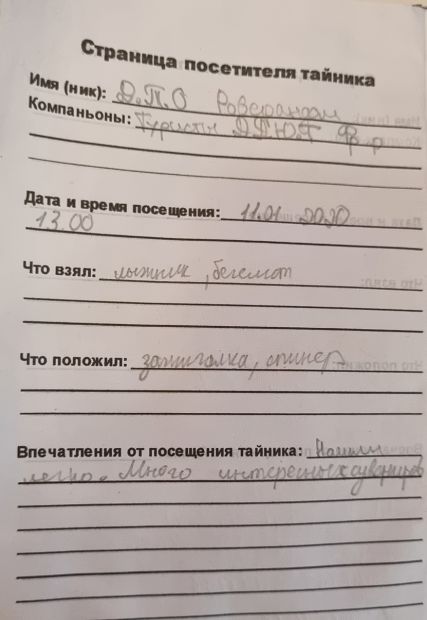 Страница посетителя тайника
Имя (ник): Д.П.О Роверандом
Компаньоны: Туристы ДДЮТ Ф р
Дата и время посещения: 11.01 2020
13.00
Что взял: лыжник, бегемот
Что положил: зажигалка, спинер
Впечатления от посещения тайника: Нашли
легко. Много интересных сувениров